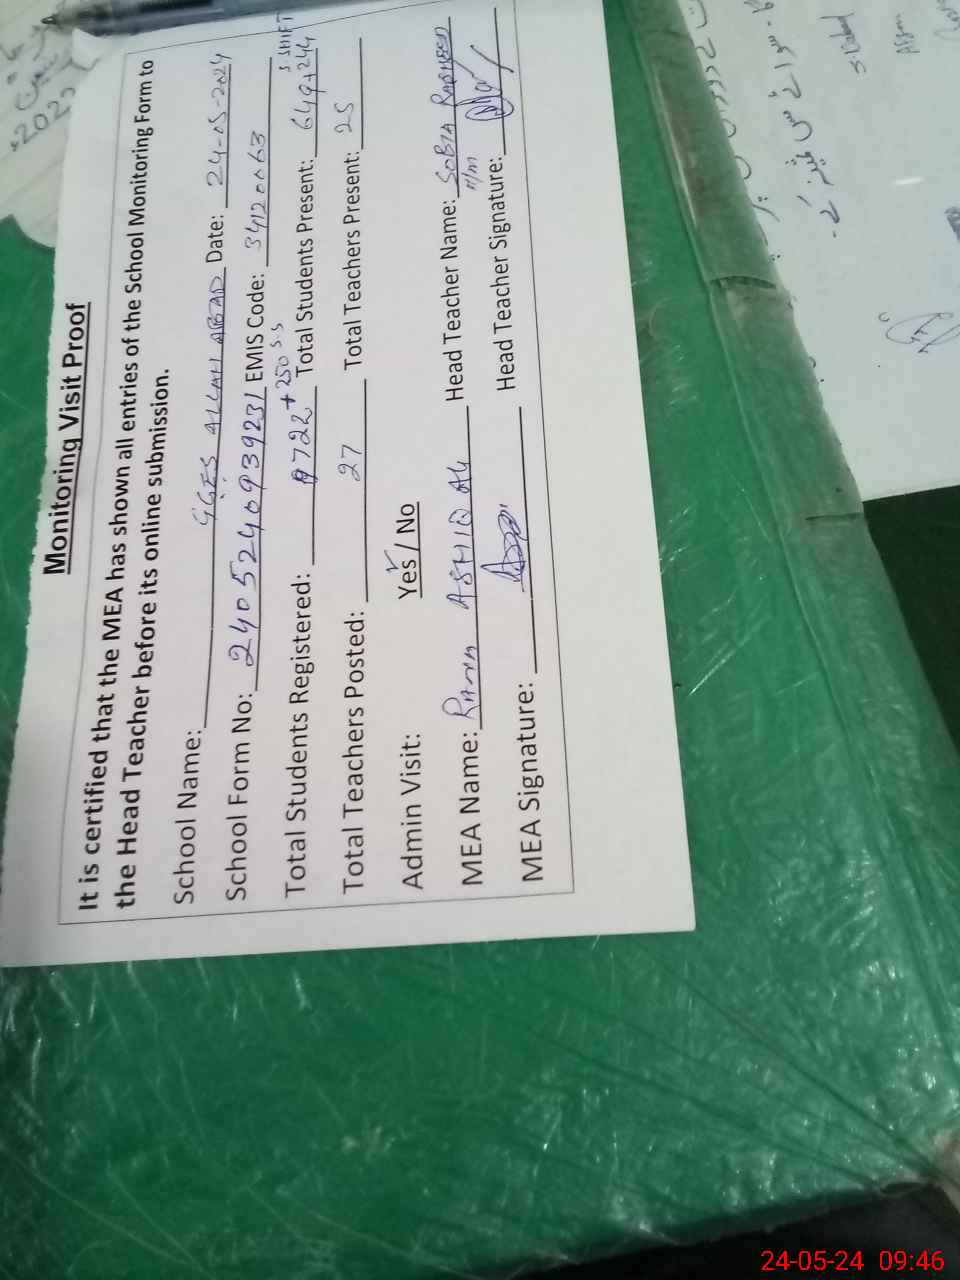 Monitoring Visit Proof
It is certified that the MEA has shown all entries of the School Monitoring Form to
the Head Teacher before its online submission.
School Name: GGES ALLAH ABAD Date: 24-05-2024
School Form No: 240524093923 1 EMIS Code: 34120063
Total Students Registered: 722 + 250 S.S Total Students Present: 649+244 S.SHIFT
Total Teachers Posted: 27 Total Teachers Present: 25
Admin Visit: Yes / No
MEA Name: RANA ASHIQ ALI Head Teacher Name: SOBIA RASHEED
H/M
MEA Signature: Head Teacher Signature:
24-05-24 09:46